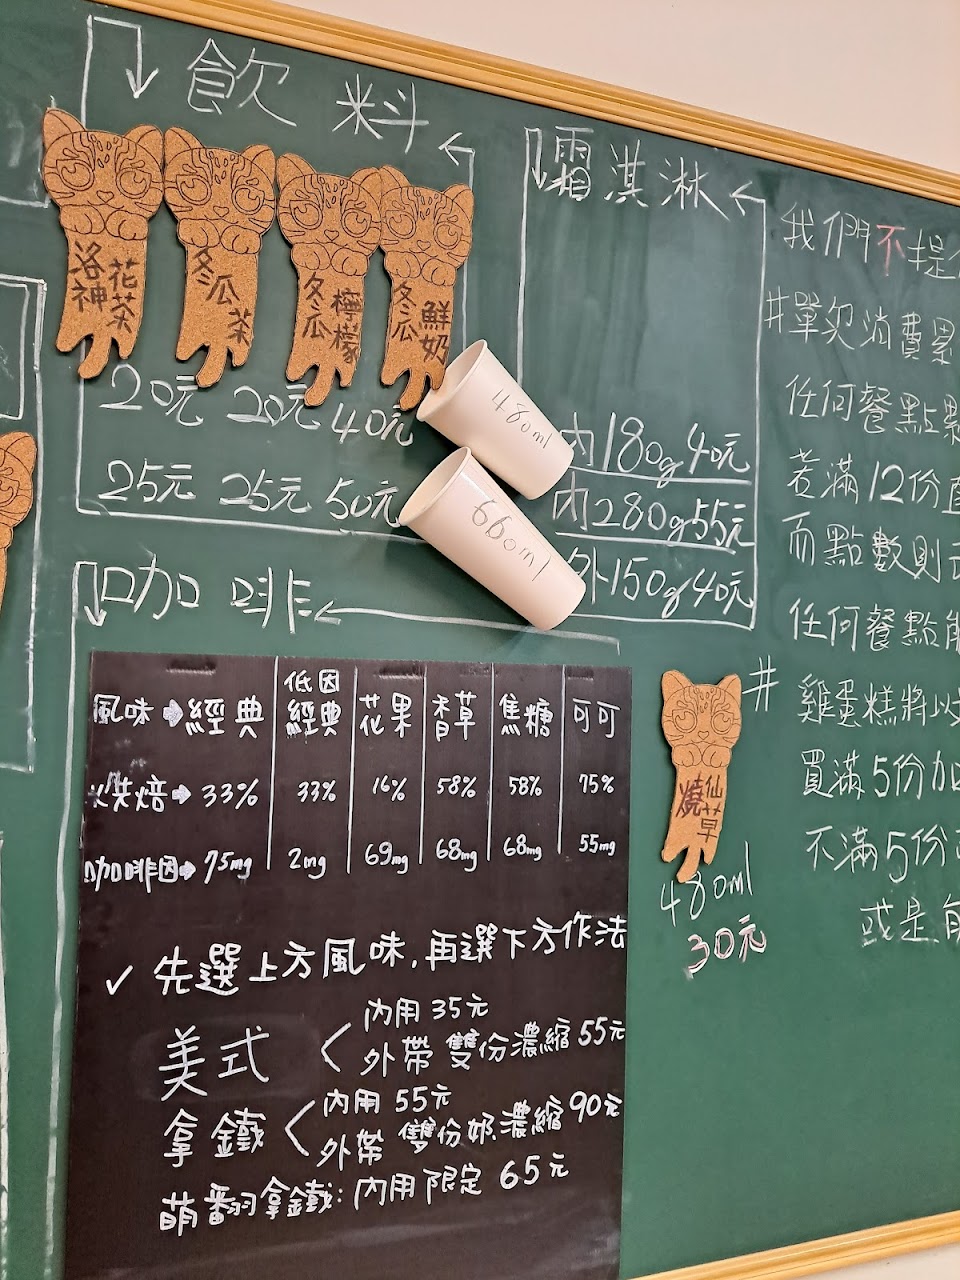 飲料
洛神花茶
冬瓜茶
冬瓜檸檬
冬瓜鮮奶
20元 20元 40元
25元 25元 50元
480ml
660ml
霜淇淋
內180g40元
內280g55元
外150g40元
我們不提
#單次消費累
任何餐點
若滿12份
而點數則
任何餐點
# 雞蛋糕將以
買滿5份加
不滿5份
或是
燒仙草
480ml
30元
咖啡
風味 經典 低因經典 花果 香草 焦糖 可可
烘焙 33% 33% 16% 58% 58% 75%
咖啡因 75mg 2mg 69mg 68mg 68mg 55mg
✓ 先選上方風味,再選下方作法
美式 < 內用 35元
外帶 雙份濃縮 55元
拿鐵 < 內用 55元
外帶 雙份奶濃縮 90元
萌翻拿鐵:內用限定 65元